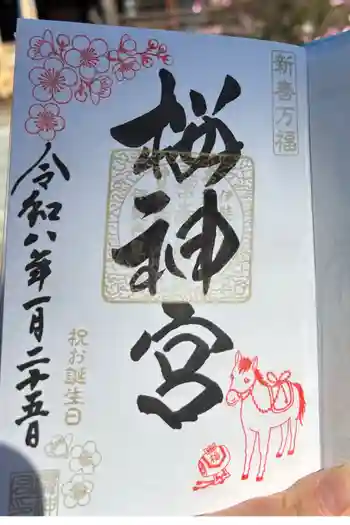 新春万福
桜神宮
令和八年一月二十五日
祝お誕生日